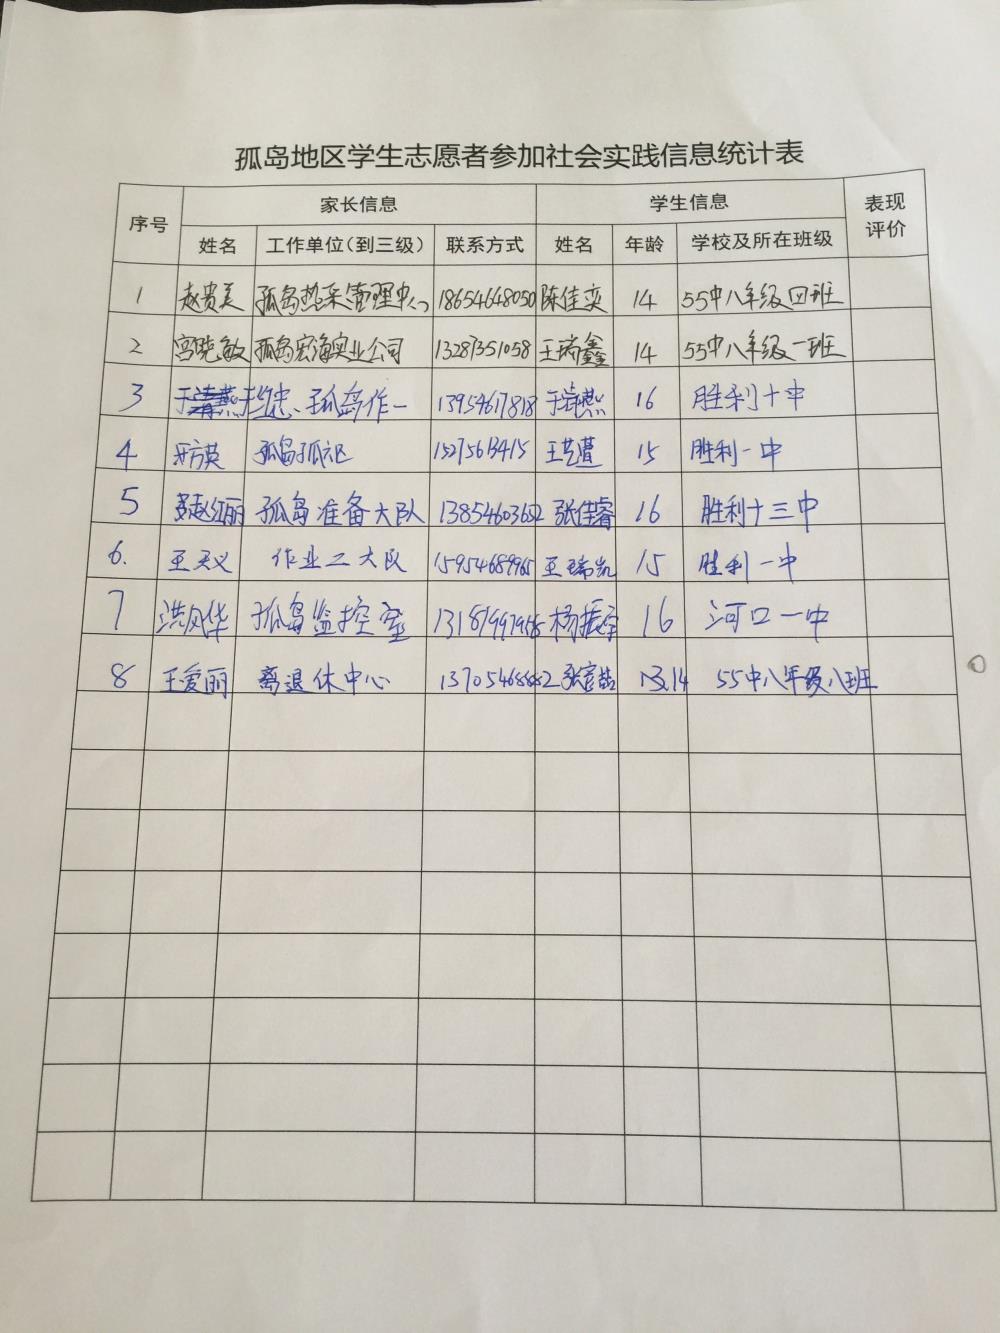 孤岛地区学生志愿者参加社会实践信息统计表
序号 家长信息 学生信息 表现评价
姓名 工作单位(到三级) 联系方式 姓名 年龄 学校及所在班级
1 赵贵美 孤岛热采管理中心 18654648050 陈佳奕 14 55中八年级四班
2 宫晓敏 孤岛宏海实业公司 13281351058 王瑞鑫 14 55中八年级一班
3 孤岛作一 13954617818 16 胜利十中
4 孤岛孤社 15275613415 15 胜利一中
5 赵红丽 孤岛准备大队 13854603652 张佳睿 16 胜利十三中
6. 王天义 作业二大队 15954689965 王瑞凯 15 胜利一中
7 洪风华 孤岛监控室 杨振宇 16 河口一中
8 王爱丽 离退休中心 13705468882 14 55中八年级八班